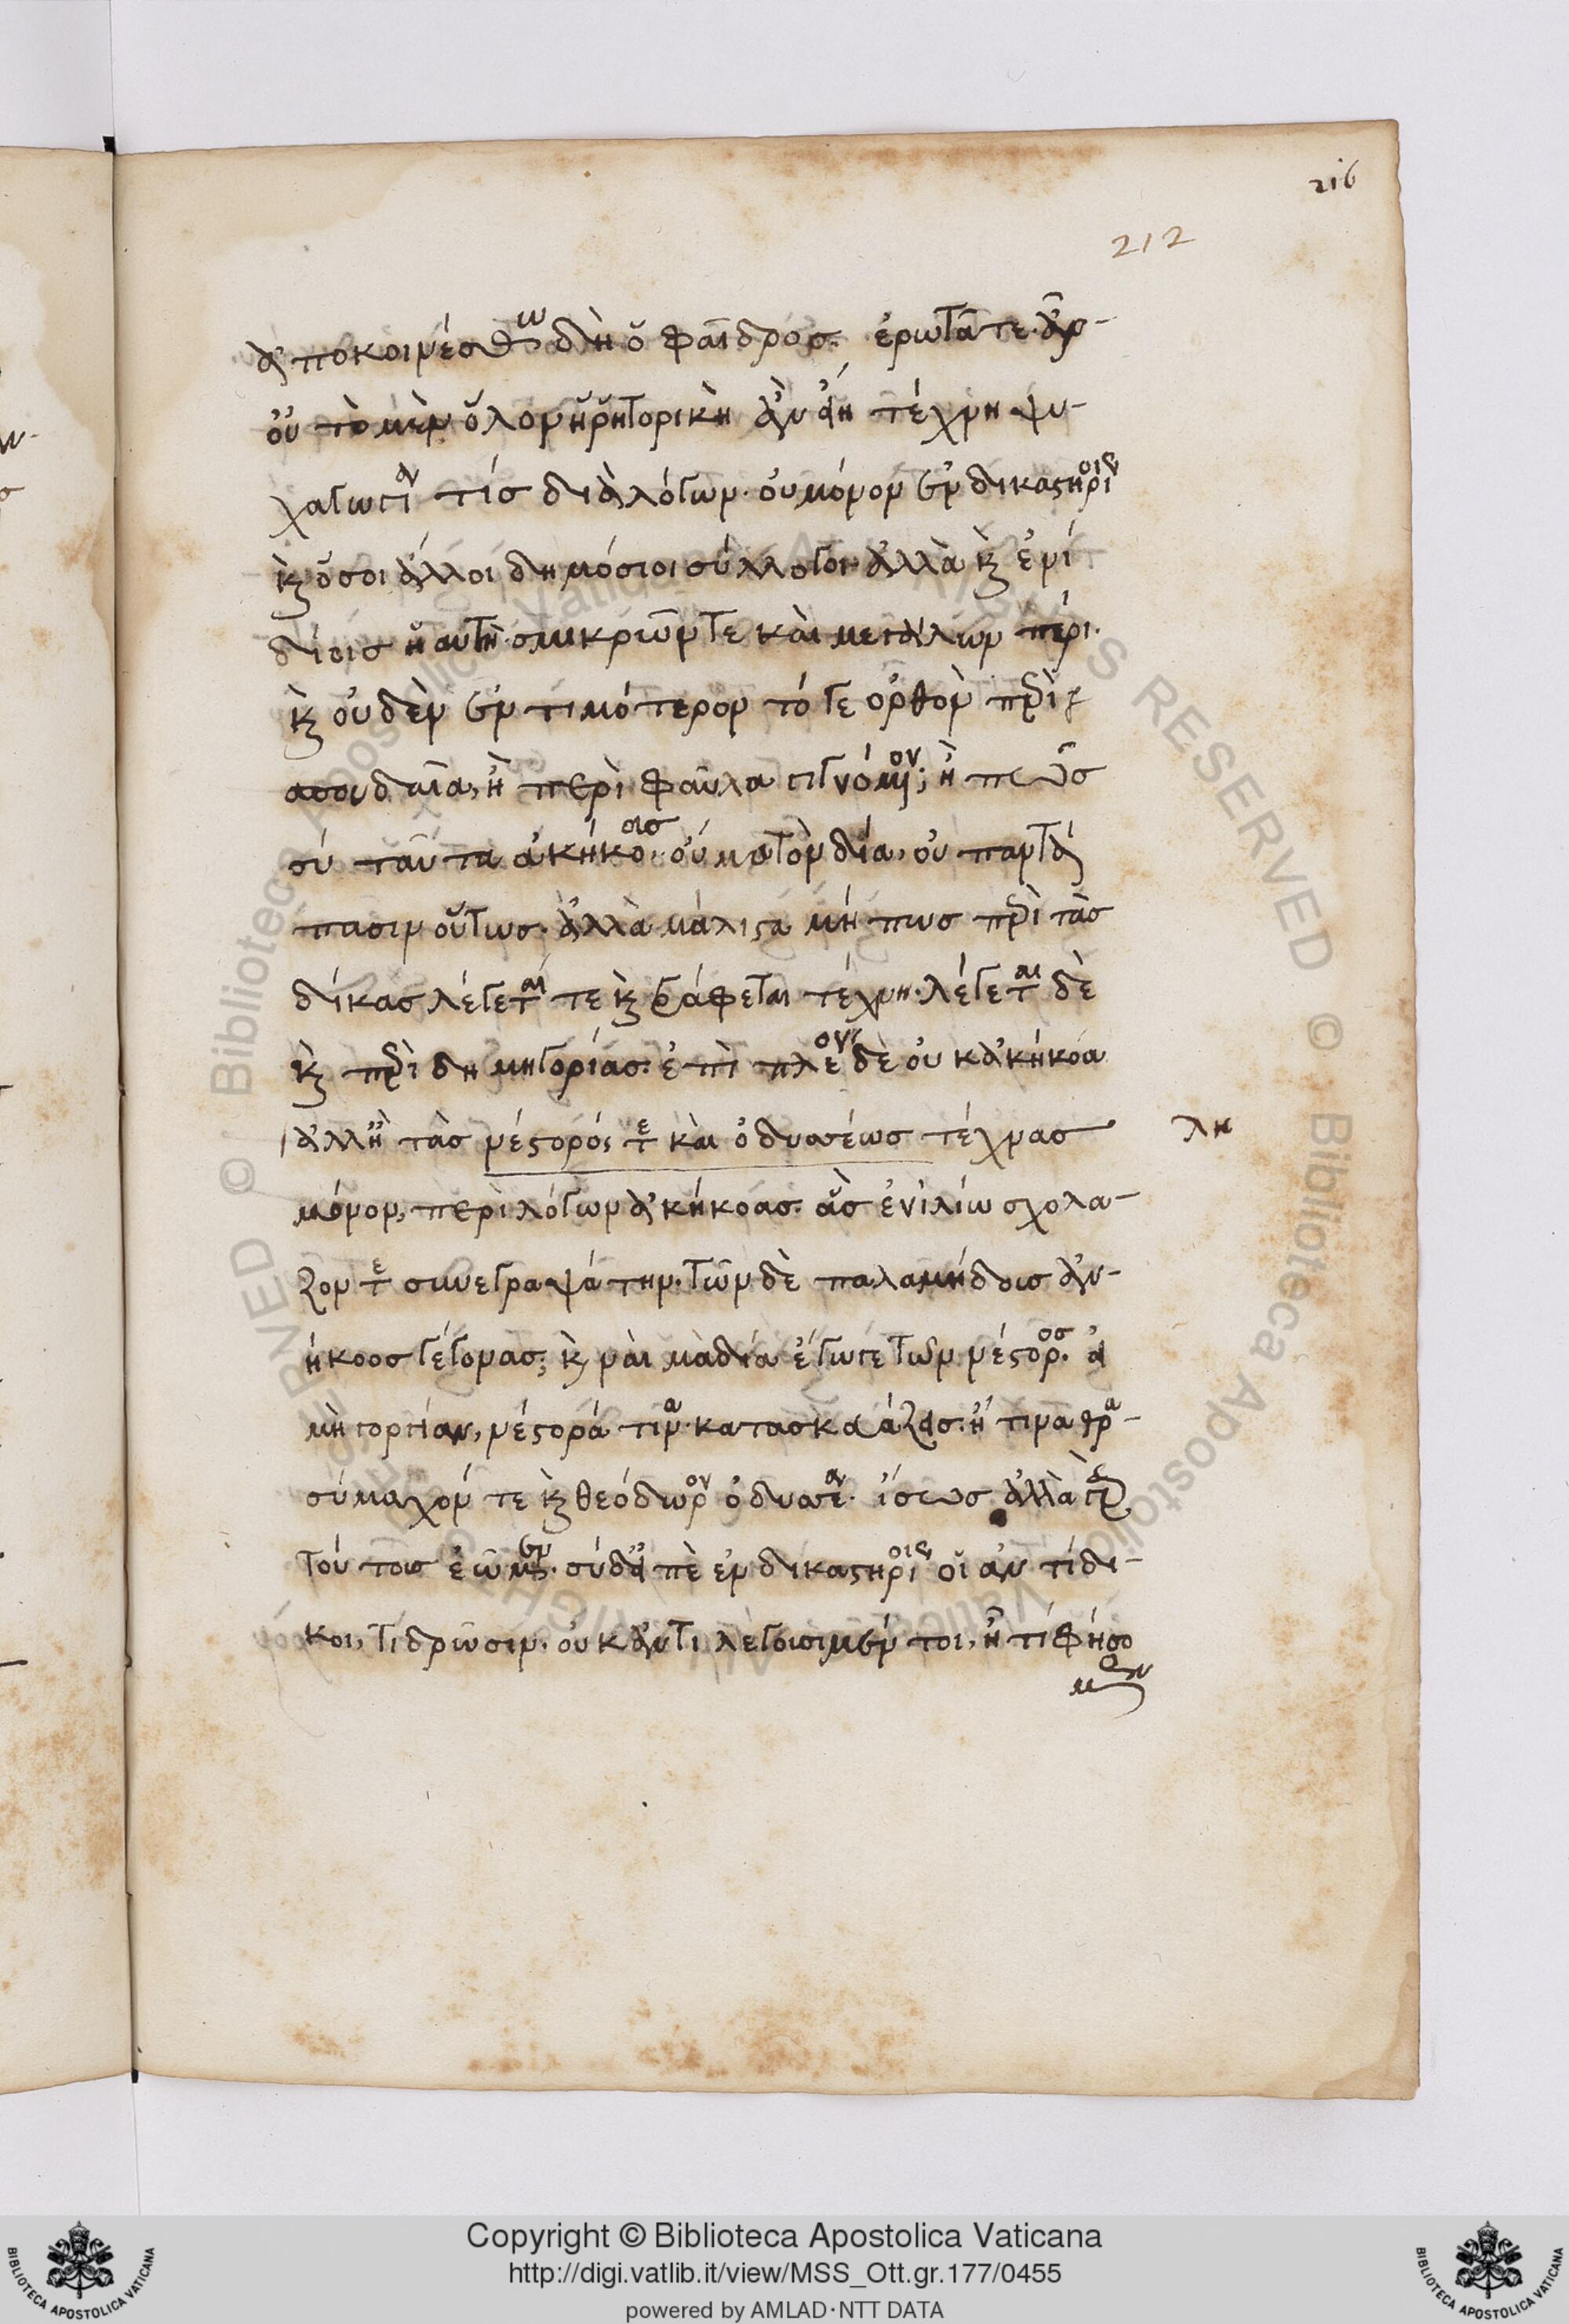 216
212
ἀποκρινέσθω δὴ ὁ φαῖδρος. ἐρωτᾶτε. ἆρ-
οὐ τὸ μὲν ὅλον ἡ ῥητορικὴ ἂν εἴη τέχνη ψυ-
χαγωγίαν τίς διὰ λόγων. οὐ μόνον ἐν δικαστηρίοις
κ̀ ὅσοι ἄλλοι δημόσιοι σύλλογοι. ἀλλὰ κ̀ ἐν ἰ
δίοις ἡ αὐτὴ. σμικρῶν τε καὶ μεγάλων πέρι.
κ̀ οὐδὲν ἐντιμότερον τό γε ὀρθὸν περὶ
σπουδαῖα, ἢ περὶ φαῦλα γιγνόμενον; ἢ πῶς
σύ ταῦτα ἀκήκοας. οὐ μὰ τὸν δία, οὐ παντά
πασιν οὕτως. ἀλλὰ μάλιστα μέν πως περὶ τὰς
δίκας λέγεταί τε κ̀ γράφεται τέχνη. λέγεται δὲ
κ̀ περὶ δημηγορίας. ἐπὶ πλέον δὲ οὐκ ἀκήκοα
ἀλλ' ἢ τὰς νέστορός τε καὶ ὀδυσσέως τέχνας
λη
μόνον, περὶ λόγων ἀκήκοας. ἃς ἐν ἰλίω σχολά-
ζοντε συνεγραψάτην. τῶν δὲ παλαμήδους ἀν-
ήκοος γέγονας; κ̀ ναὶ μὰ δία ἔγωγε τῶν νέστορος. εἰ
μὴ γοργίαν, νέστορά τινα κατασκευάζεις. ἤ τινα θρα-
σύμαχόν τε κ̀ θεόδωρον ὀδυσσέα. ἴσως. ἀλλὰ γὰρ
τούτους ἐῶμεν. σὺ δ' εἰπὲ ἐν δικαστηρίοις οἱ ἀντίδι-
κοι, τί δρῶσιν. οὐκ ἀντιλέγουσιν μέντοι, ἢ τί φήσο
μεν
Copyright © Biblioteca Apostolica Vaticana
http://digi.vatlib.it/view/MSS_Ott.gr.177/0455
powered by AMLAD·NTT DATA